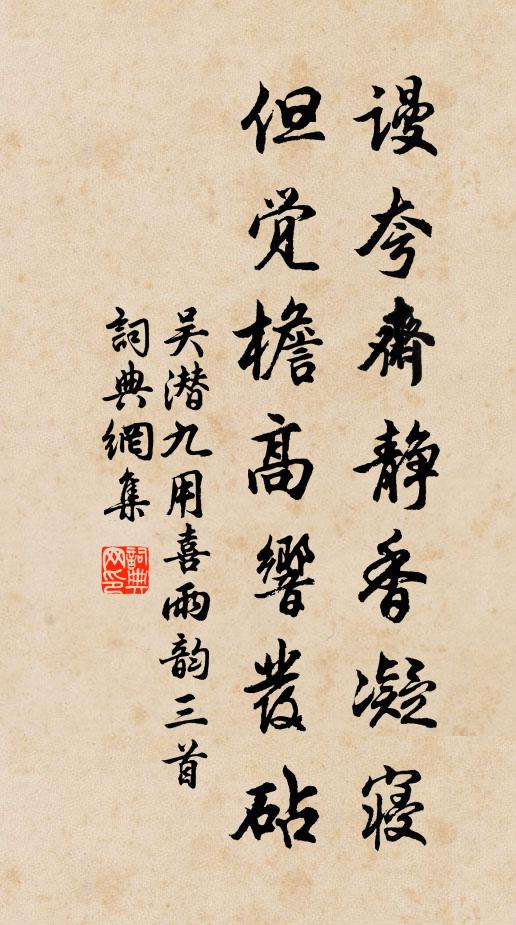 谩夸斋静香凝寝
但觉檐高響發砧
吴潜九用喜雨韵三首
詞典網集
詞典網印